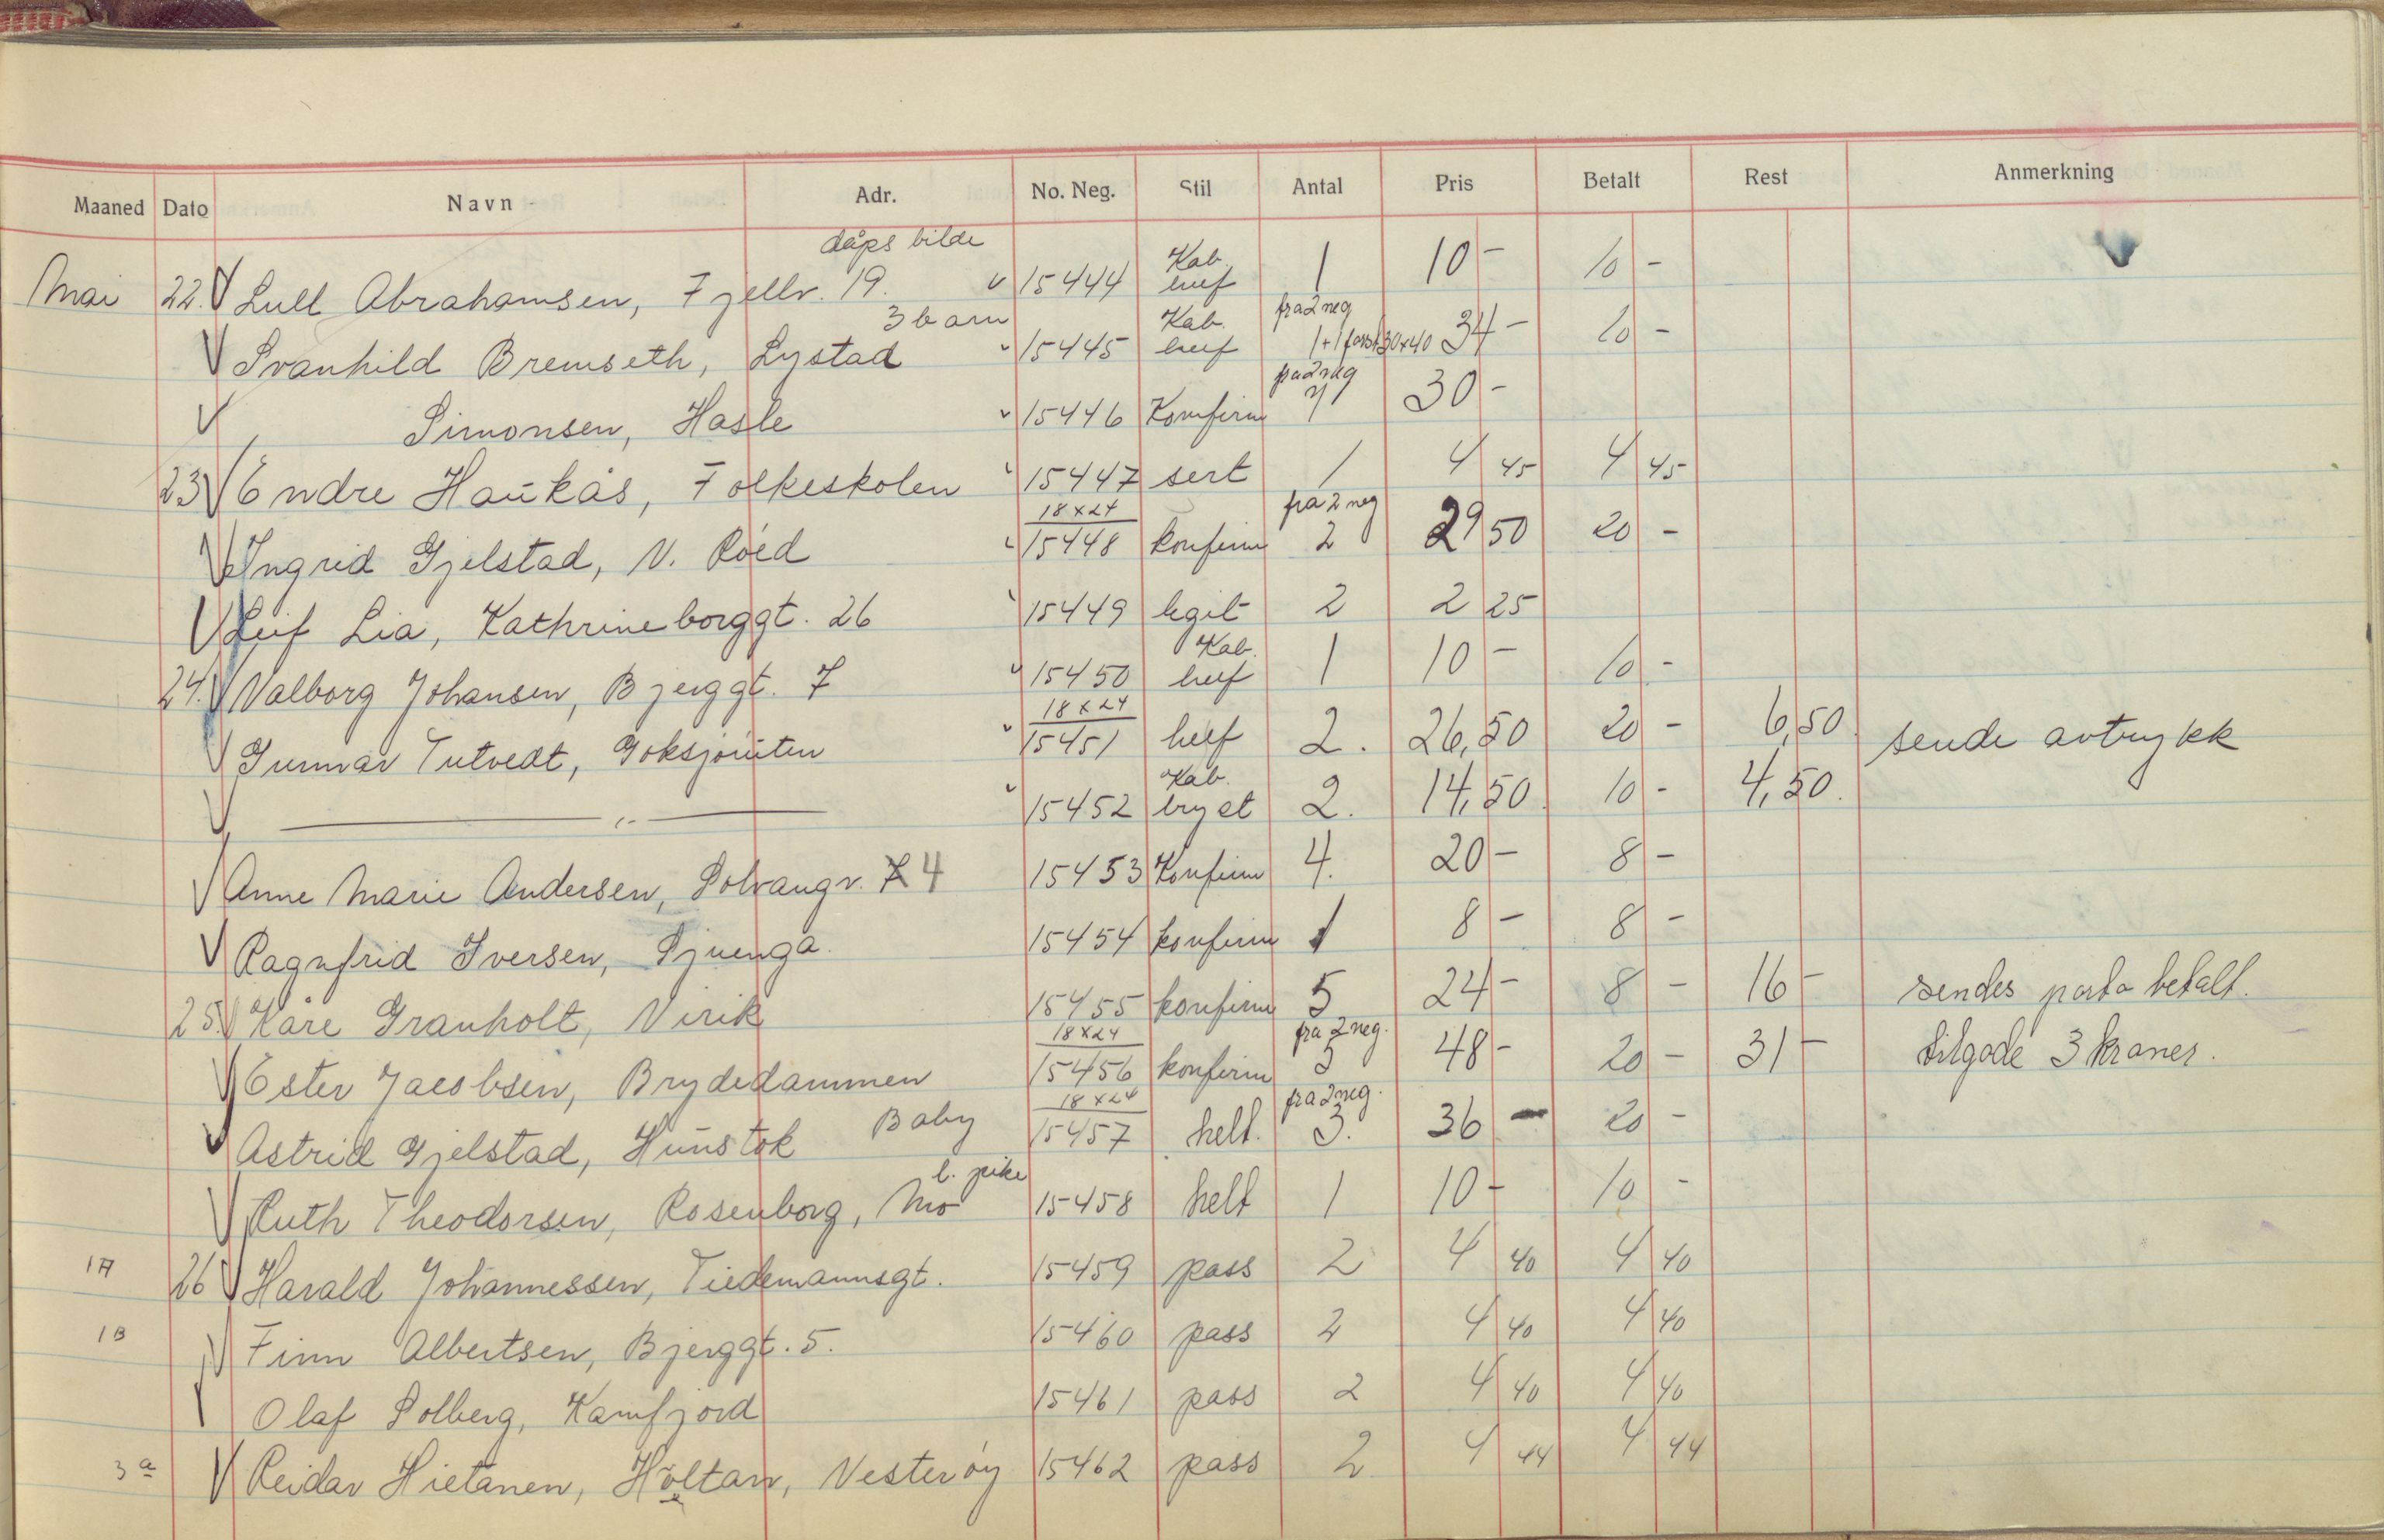 Maaned Dato Navn Adr. No. Neg. Stil Antal Pris Betalt Rest Anmerkning
dåps bilde Kab.
Mai 22. Lull Abrahamsen, Fjellv. 19. 15444 1 10 - 10 -
3 barn Kab. fra 2 neg
Svanhild Bremseth, Lystad 15445 1+1 forst 30x40 34 - 20 -
fra 2 neg
Simonsen, Hasle 15446 Konfirm 30 -
23 Endre Haukås, Folkeskolen 15447 sert 1 4 45 4 45
18 x 24 fra 2 neg
Ingrid Gjelstad, N. Röed 15448 konfirm 2 29 50 20 -
Leif Lia, Kathrineborggt. 26 15449 legit 2 2 25
Kab.
24. Valborg Johansen, Bjerggt. 7 15450 1 10 - 10 -
18 x 24
Gunnar Tutvedt, 15451 2. 26,50 20 - 6,50 sende avtrykk
Kab.
— " — 15452 bryst 2. 14,50 10 - 4,50.
Anne Marie Andersen, Solvangv. 4 15453 Konfirm 4. 20 - 8 -
Ragnfrid Iversen, 15454 konfirm 1 8 - 8 -
25. Kåre Granholt, Virik 15455 konfirm 5 24 - 8 - 16 - sendes porto betalt.
18 x 24 fra 2 neg.
Ester Jacobsen, Brydedammen 15456 konfirm 5 48 - 20 - 31 - tilgode 3 kroner.
Baby 18 x 24 fra 2 neg.
Astrid Gjelstad, Hunstok 15457 helt. 3. 36 - 20 -
l. pike
Ruth Theodorsen, Rosenborg, Mo 15458 helt 1 10 - 10 -
1A 26 Harald Johannessen, Tiedemannsgt. 15459 pass 2 4 40 4 40
1B Finn Albertsen, Bjerggt. 5. 15460 pass 2 4 40 4 40
Olaf Solberg, Kamfjord 15461 pass 2 4 40 4 40
3a Reidar Hietanen, Höltan, Vesteröy 15462 pass 2 4 44 4 44